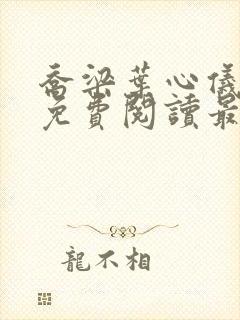 喬梁葉心儀
免費閱讀最
龍不相